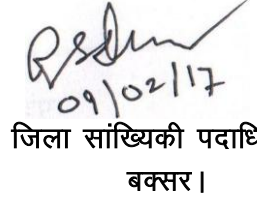 09/02/17
जिला सांख्यिकी पदाधि
बक्सर।